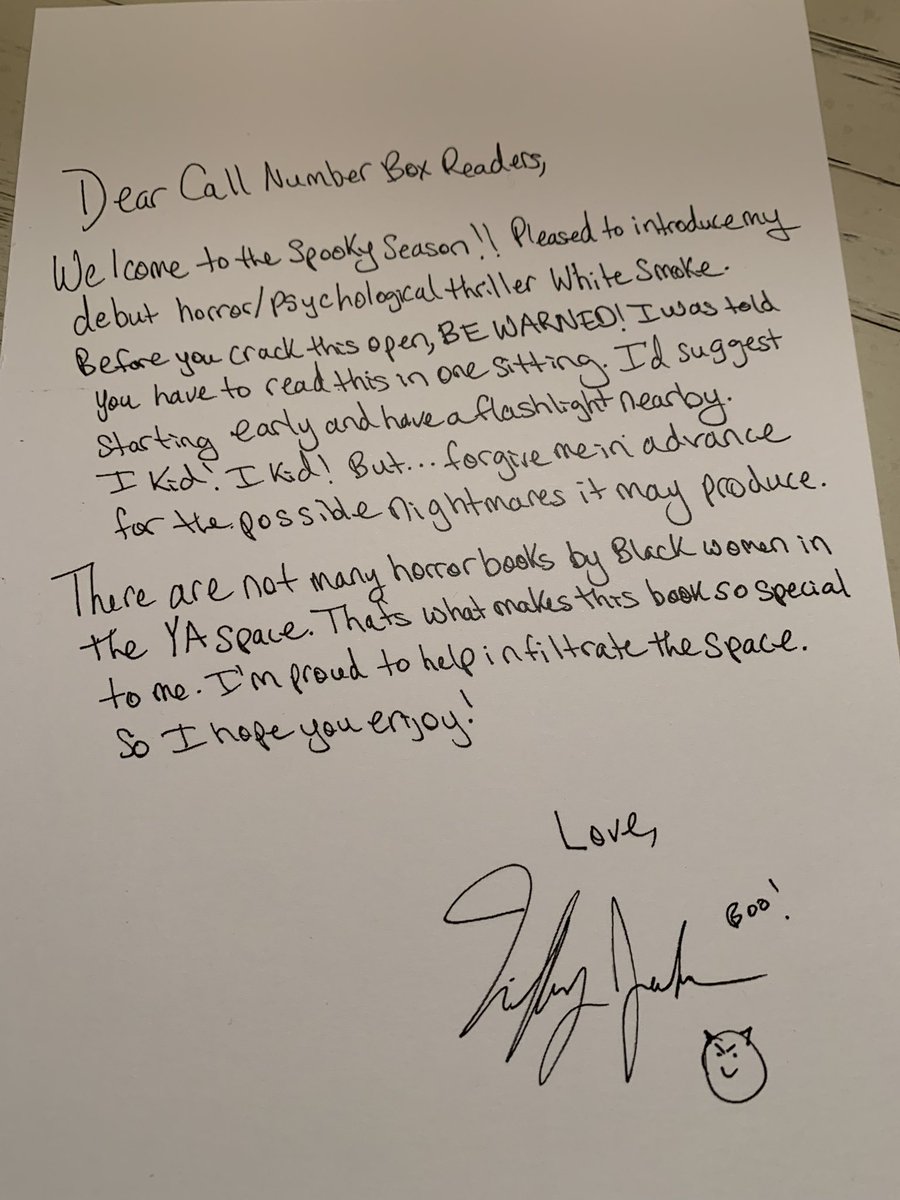 Dear Call Number Box Readers,
Welcome to the Spooky Season!! Pleased to introduce my
debut horror/psychological thriller White Smoke.
Before you crack this open, BE WARNED! I was told
you have to read this in one sitting. I'd suggest
starting early and have a flashlight nearby.
I kid! I kid! But... forgive me in advance
for the possible nightmares it may produce.
There are not many horror books by Black women in
the YA space. Thats what makes this book so special
to me. I'm proud to help infiltrate the space.
So I hope you enjoy!
Love,
Tiffany Jackson
Boo!